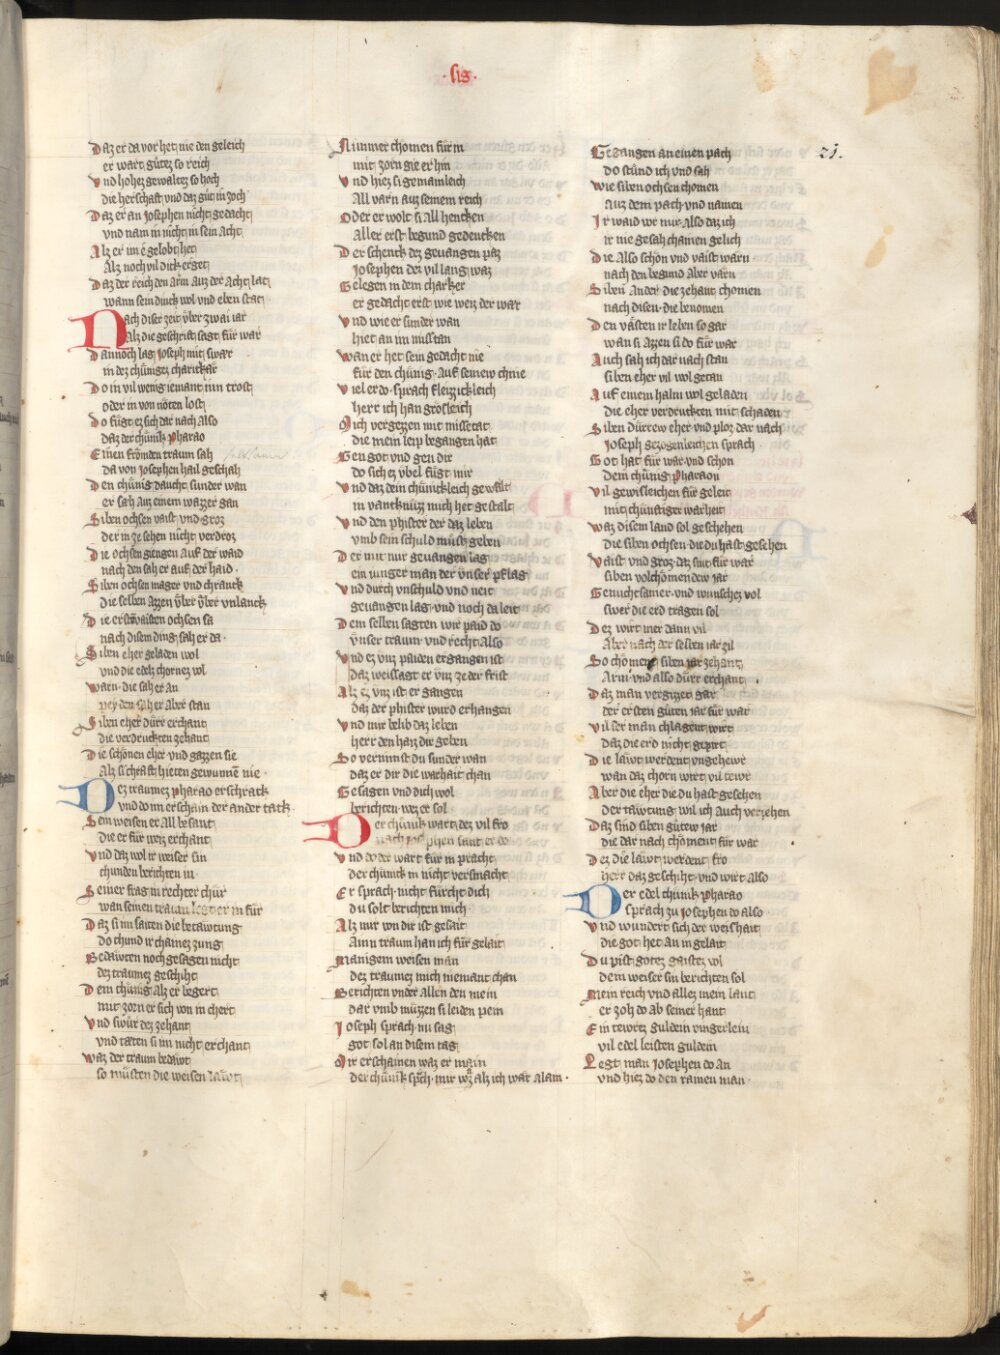 ·lis·
21.
Daz er da vor het nie den geleich
er wart gůtez so reich
Vnd hohez gewaltez so hoch
die herschaft vnd daz gůt in zoch
Daz er an Josephen nicht gedacht
vnd nam in nicht in sein acht
Alz er im é gelobt het
Alz noch vil dick erget
Daz der reich den arm auz der acht lat
wann sein dinck wol vnd eben stat
Nach diser zeit vͤber zwai iar
Alz die geschrift sagt für war
Dannoch lag Joseph mit swar
in dez chünigez charchar
Do in vil wenig iemant inn trost
oder in von nöten lost
Do fůgt ez sich dar nach also
daz der chünik Pharao
Einen frömden traum sah
da von Josephen hail geschah
Den chünig daucht sunder wan
er sah auz einem wazzer gan
Siben ochsen vaist vnd groz
der in ze sehen nicht verdroz
Die ochsen giengen auf der waid
nach den sah er auf der haid
Siben ochsen mager vnd chranck
die selben azzen vͤber vͤber vnlanck
Die ersten vaisten ochsen sa
nach disem ding sah er da·
Siben eher geladen wol
vnd die edelz chornez vol
Warn· die sah er an
pey den sah er aber stan
Siben eher dürr erchant
die verdruckten zehant
Die schönen eher vnd gazzen sie
Alz si chraft hieten gewunnē nie·
Dez traumez pharao erschrack
vnd do im erschain der ander tack·
Sein weisen er all besant
die er für weiz erchant
Vnd daz wol ir weiser sin
chunden berichten in·
Seiner frag in rechter chür
wan seinen traum legt er in für
Daz si im saiten die betawtung
do chund ir chainez zung
Bedawten noch gesagen nicht
dez traumez geschiht
Dem chünig alz er begert
mit zorn er sich von in chert
Vnd swůr dez zehant
vnd taten si im nicht erchant
Waz der traum bedawt
so müsten die weisen lawt
Nimmer chomen für in
mit zorn gie er hin
Vnd hiez si gemainleich
All varn auz seinem reich
Oder er wolt si all hencken
Aller erst begund gedencken
Der schenck dez geuangen paz
Josephen der vil lang waz
Gelegen in dem charker
er gedacht erst wie weiz der war
Vnd wie er sunder wan
hiet an im misstan
Wan er het sein gedacht nie
für den chünig· Auf seinew chnie
Viel er do· sprach fleizzickleich
herr ich han grösleich
Mich vergezzen mit missetat
die mein leip begangen hat
Gen got vnd gen dir
do sich ez vͤbel fůgt mir
Vnd daz dein chünickleich gewalt
in vancknüzz mich het gestalt
Vnd den phister der daz leben
vmb sein schuld müst geben
Der mit mir geuangen lag
ein iunger man der vnser pflag
Vnd durch vnschuld vnd neit
geuangen lag· vnd noch da leit
Dem selben sagten wir paid do
vnser traum· vnd recht also
Vnd ez vnz paiden ergangen ist
daz weissagt er vnz ze der frist
Alz ez vnz ist er gangen
daz der phister wurd erhangen
Vnd mir belib daz leben
herr den haiz dir geben
So vernimst du sunder wan
daz er dir die warhait chan
Gesagen vnd dich wol
berichten· wez er sol
Der chünik wart dez vil fro
nach Josephen sant er do
Vnd do der wart für in pracht
der chünick in nicht versmacht
Er sprach nicht fürcht dich
du solt berichten mich
Alz mir von dir ist gesait
Ainn traum han ich für gelait
Manigem weisen man
dez traumez mich niemant chan
Berichten vnder allen den mein
dar vmb müzzen si leiden pein
Joseph sprach nu sag
got sol an disem tag
Dir erschainen waz er main
der chünik spͣch· mir wͣz alz ich war alain·
Gegangen an einen pach
do stůnd ich vnd sah
Wie siben ochsen chomen
auz dem pach vnd namen
Ir waid vor mir also daz ich
ir nie gesah chainen gelich
Die also schön vnd vaist warn
nach den begund aber varn
Siben ander die zehant chomen
nach disen· die benomen
Den vaisten ir leben so gar
wan si azzen si do für war
Auch sah ich dar nach stan
siben eher vil wol getan
Auf einem halm wol geladen
die eher verdruckten mit schaden
Siben dürrew eher vnd ploz dar nach
Joseph gezogenleichen sprach
Got hat für war vnd schon
dem chünig Pharaon
Vil gewisleichen für geleit
mit chünftiger warheit
Waz disem land sol geschehen
die siben ochsen die du hast gesehen
Vaist vnd groz daz sint für war
siben volchomendew iar
Genuchtsamer· vnd wunschez vol
swer die erd tragen sol
Dez wirt mer dann vil
Aber nach der selben iar zil
So choment siben iar zehant
Arm vnd also dürr erchant
Daz man vergizzet gar
der ersten gůten iar für war
Vil ser man chlagent wirt
daz die erd nicht gepirt
Die lawt werdent vngehewr
wan daz chorn wirt vil tewr
Aber die eher die du hast gesehen
Der tawtung wil ich auch veriehen
Daz sind siben gůtew iar
die dar nach choment für war
Dez die lawt werdent fro
herr daz geschiht· vnd wirt also
Der edel chünik Pharao
sprach zu Josephen do also
Vnd wundert sich der weishait
die got het an in gelait
Du pist gotez gaistez vol
dem weiser sin berichten sol
Mein reich vnd allez mein lant
er zoh do ab seiner hant
Ein tewrez guldein vingerlein
vil edel leisten guldein
Legt man Josephen do an
vnd hiez do den ramen man·